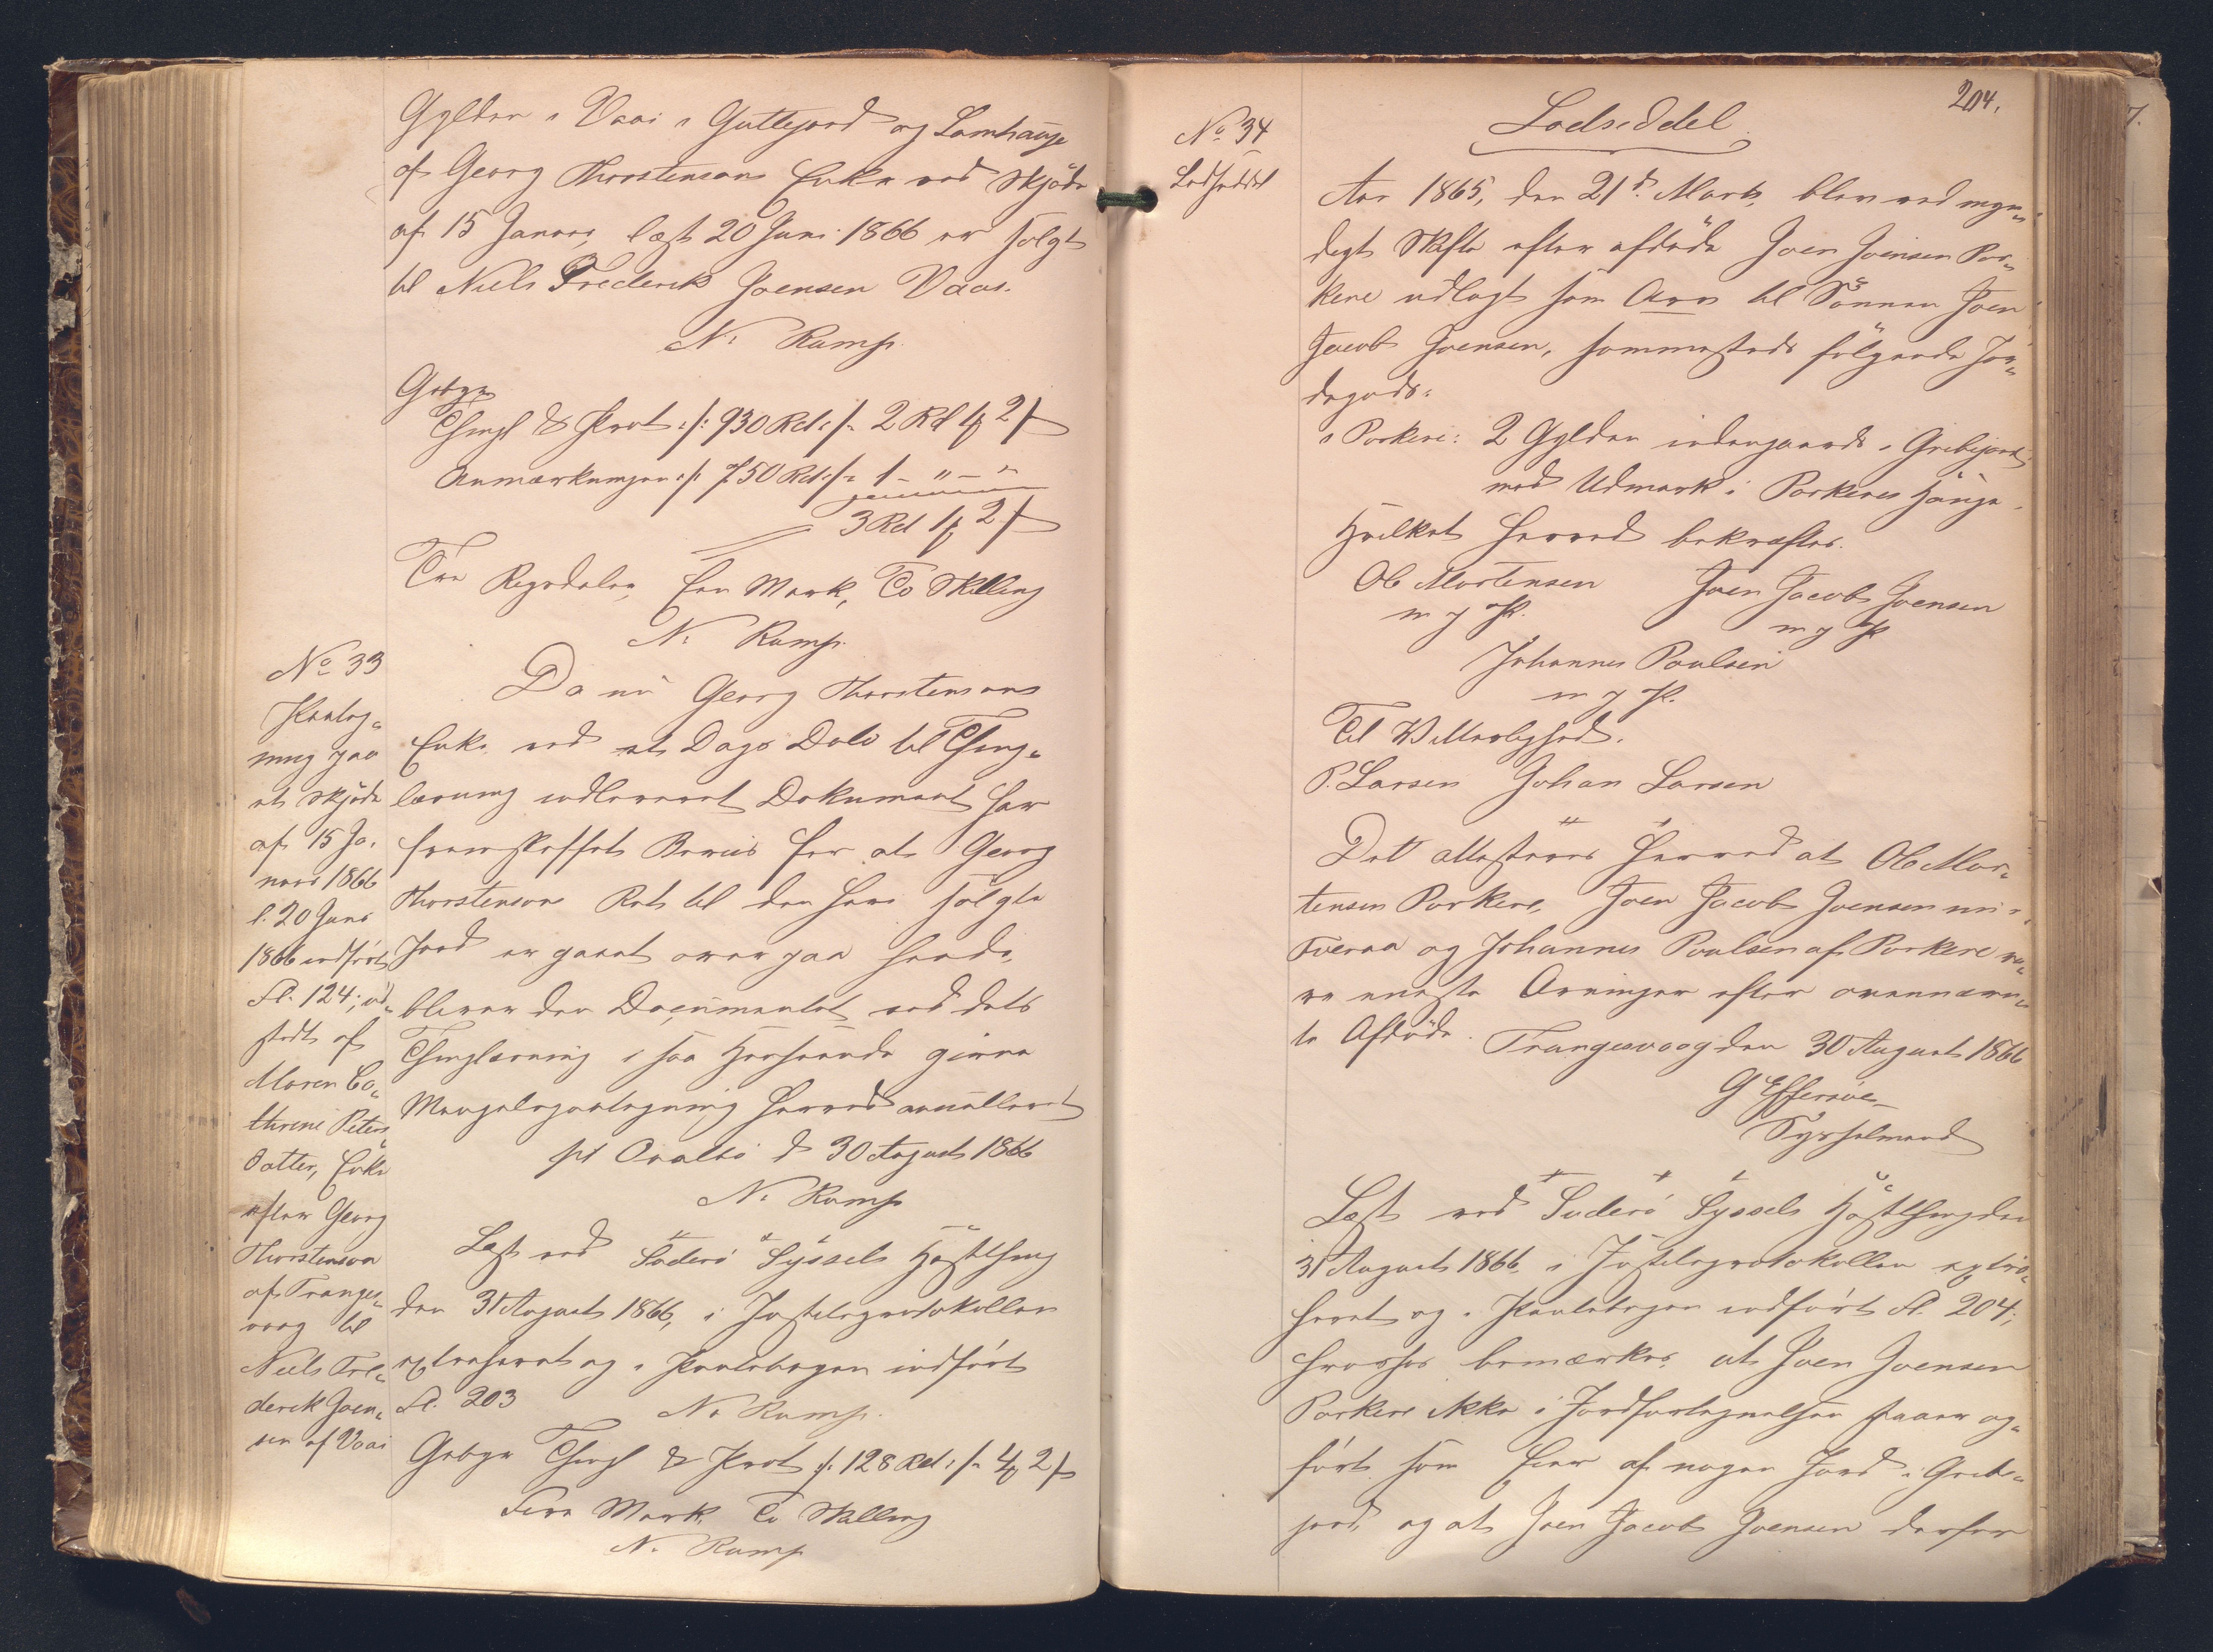 Gylden i Vaai i Guttejord og Lamhauge
af Georg Thorstensons Enke ved Skjøde
af 15 Januar, læst 20 Juni 1866 er solgt
til Niels Frederik Joensen Vaai.
N. Ramp.
Gebyr
Thingl & Prot :/: 930 Rd :/: 2 Rd 1 # 2 s
Anmærkningen :/: 750 Rd :/: 1 - " - "
3 Rd 1 # 2 s
Tre Rigsdaler, Een Mark, To Skilling
N. Ramp.
No 33
Paateg-
ning paa
et Skjøde
af 15 Ja-
nuar 1866
l. 20 Juni
1866 indført
Fl. 124; ud-
stedt af
Maren Ca-
thrine Peters
datter, Enke
efter Georg
Thorstenson
af Tranges-
vaag til
Niels Fre-
derik Joen-
sen af Vaai
Da nu Georg Thorstensons
Enke ved et Dags Dato til Thing-
læsning indleveret Dokument har
fremskaffet Beviis for at Georg
Thorstensons Ret til den her solgte
Jord er gaaet over paa hende,
bliver den Documentet ved dets
Thinglæsning i saa Henseende givne
Mangelspaategning herved annulleret
pt Qvalbø d 30 August 1866
N. Ramp
Læst ved Suderø Syssels Høstthing
den 31 August 1866, i Justitsprotokollen
extraheret og i Pantebogen indført
Fl. 203
N. Ramp.
Gebyr Thingl & Prot :/: 128 Rd :/: 4 # 2 s
Fire Mark To Skilling
N. Ramp
204.
No 34
Lodseddel
Lodseddel
Aar 1865, den 21de Marts, blev ved myn-
digt Skifte efter afdøde Joen Joensen Por-
kere udlagt som Arv til Sønnen Joen
Jacob Joensen, sammesteds følgende Jor-
degods:
i Porkere: 2 Gylden indengaards i Gribejord
med Udmark i Porkeres Hauge.
Hvilket herved bekræftes.
Ole Mortensen Joen Jacob Joensen
m f P. m f P
Johannes Poulsen
m f P.
Til Vitterlighed.
P. Larsen Johan Larsen
Det attesteres herved at Ole Mor-
tensen Porkere, Joen Jacob Joensen nu i
Tveraa og Johannes Poulsen af Porkere va-
re eneste Arvinger efter ovennævn-
te Afdøde. Trangesvaag den 30 August 1866
G Effersøe
Sysselmand
Læst ved Suderø Syssels Høstthing den
31 August 1866, i Justitsprotokollen extra-
heret og i Pantebogen indført Fl. 204;
hvorhos bemærkes at Joen Joensen
Porkere ikke i Jordfortegnelsen staaer op-
ført som Eier af nogen Jord i Gribe-
jord, og at Joen Jacob Joensen derfor